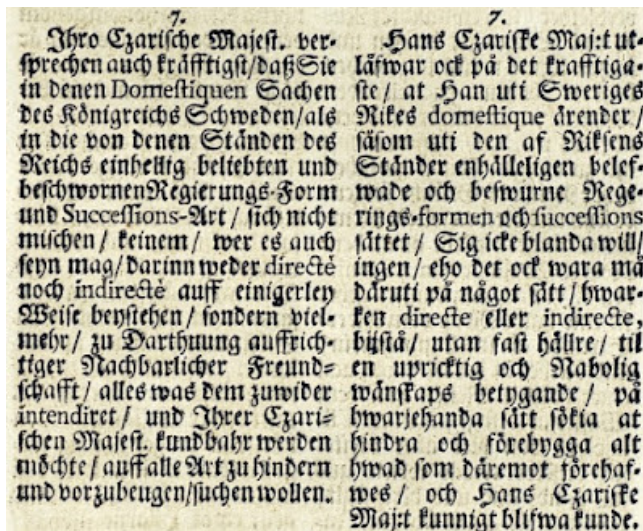 7.
Ihro Czarische Majest. ver-
sprechen auch kräfftigst/daß Sie
in denen Domestiquen Sachen
des Königreichs Schweden/als
in die von denen Ständen des
Reichs einhellig beliebten und
beschwornen Regierungs-Form
und Successions-Art/ sich nicht
mischen/ keinem/ wer es auch
seyn mag/darinn weder directè
noch indirectè auff einigerley
Weise beystehen/ sondern viel-
mehr/ zu Darthuung auffrich-
tiger Nachbarlicher Freund=
schafft/ alles was dem zuwider
intendiret/ und Ihrer Czari=
schen Majest. kundbahr werden
möchte/ auff alle Art zu hindern
und vorzubeugen/suchen wollen.
7.
Hans Czariske Maj:t ut-
låfwar ock på det krafftiga-
ste/ at Han uti Sweriges
Rikes domestique ärender/
såsom uti den af Riksens
Ständer enhälleligen belef-
wade och beswurne Rege-
rings-formen och successions
sättet/ Sig icke blanda will/
ingen/ eho det ock wara må
däruti på något sätt/ hwar-
ken directe eller indirecte,
bijstå/ utan fast hällre/ til
en upricktig och Nabolig
wänskaps betygande/ på
hwarjehanda sätt sökia at
hindra och förebygga alt
hwad som däremot förehaf-
wes/ och Hans Czariske
Maj:t kunnigt blifwa kunde.